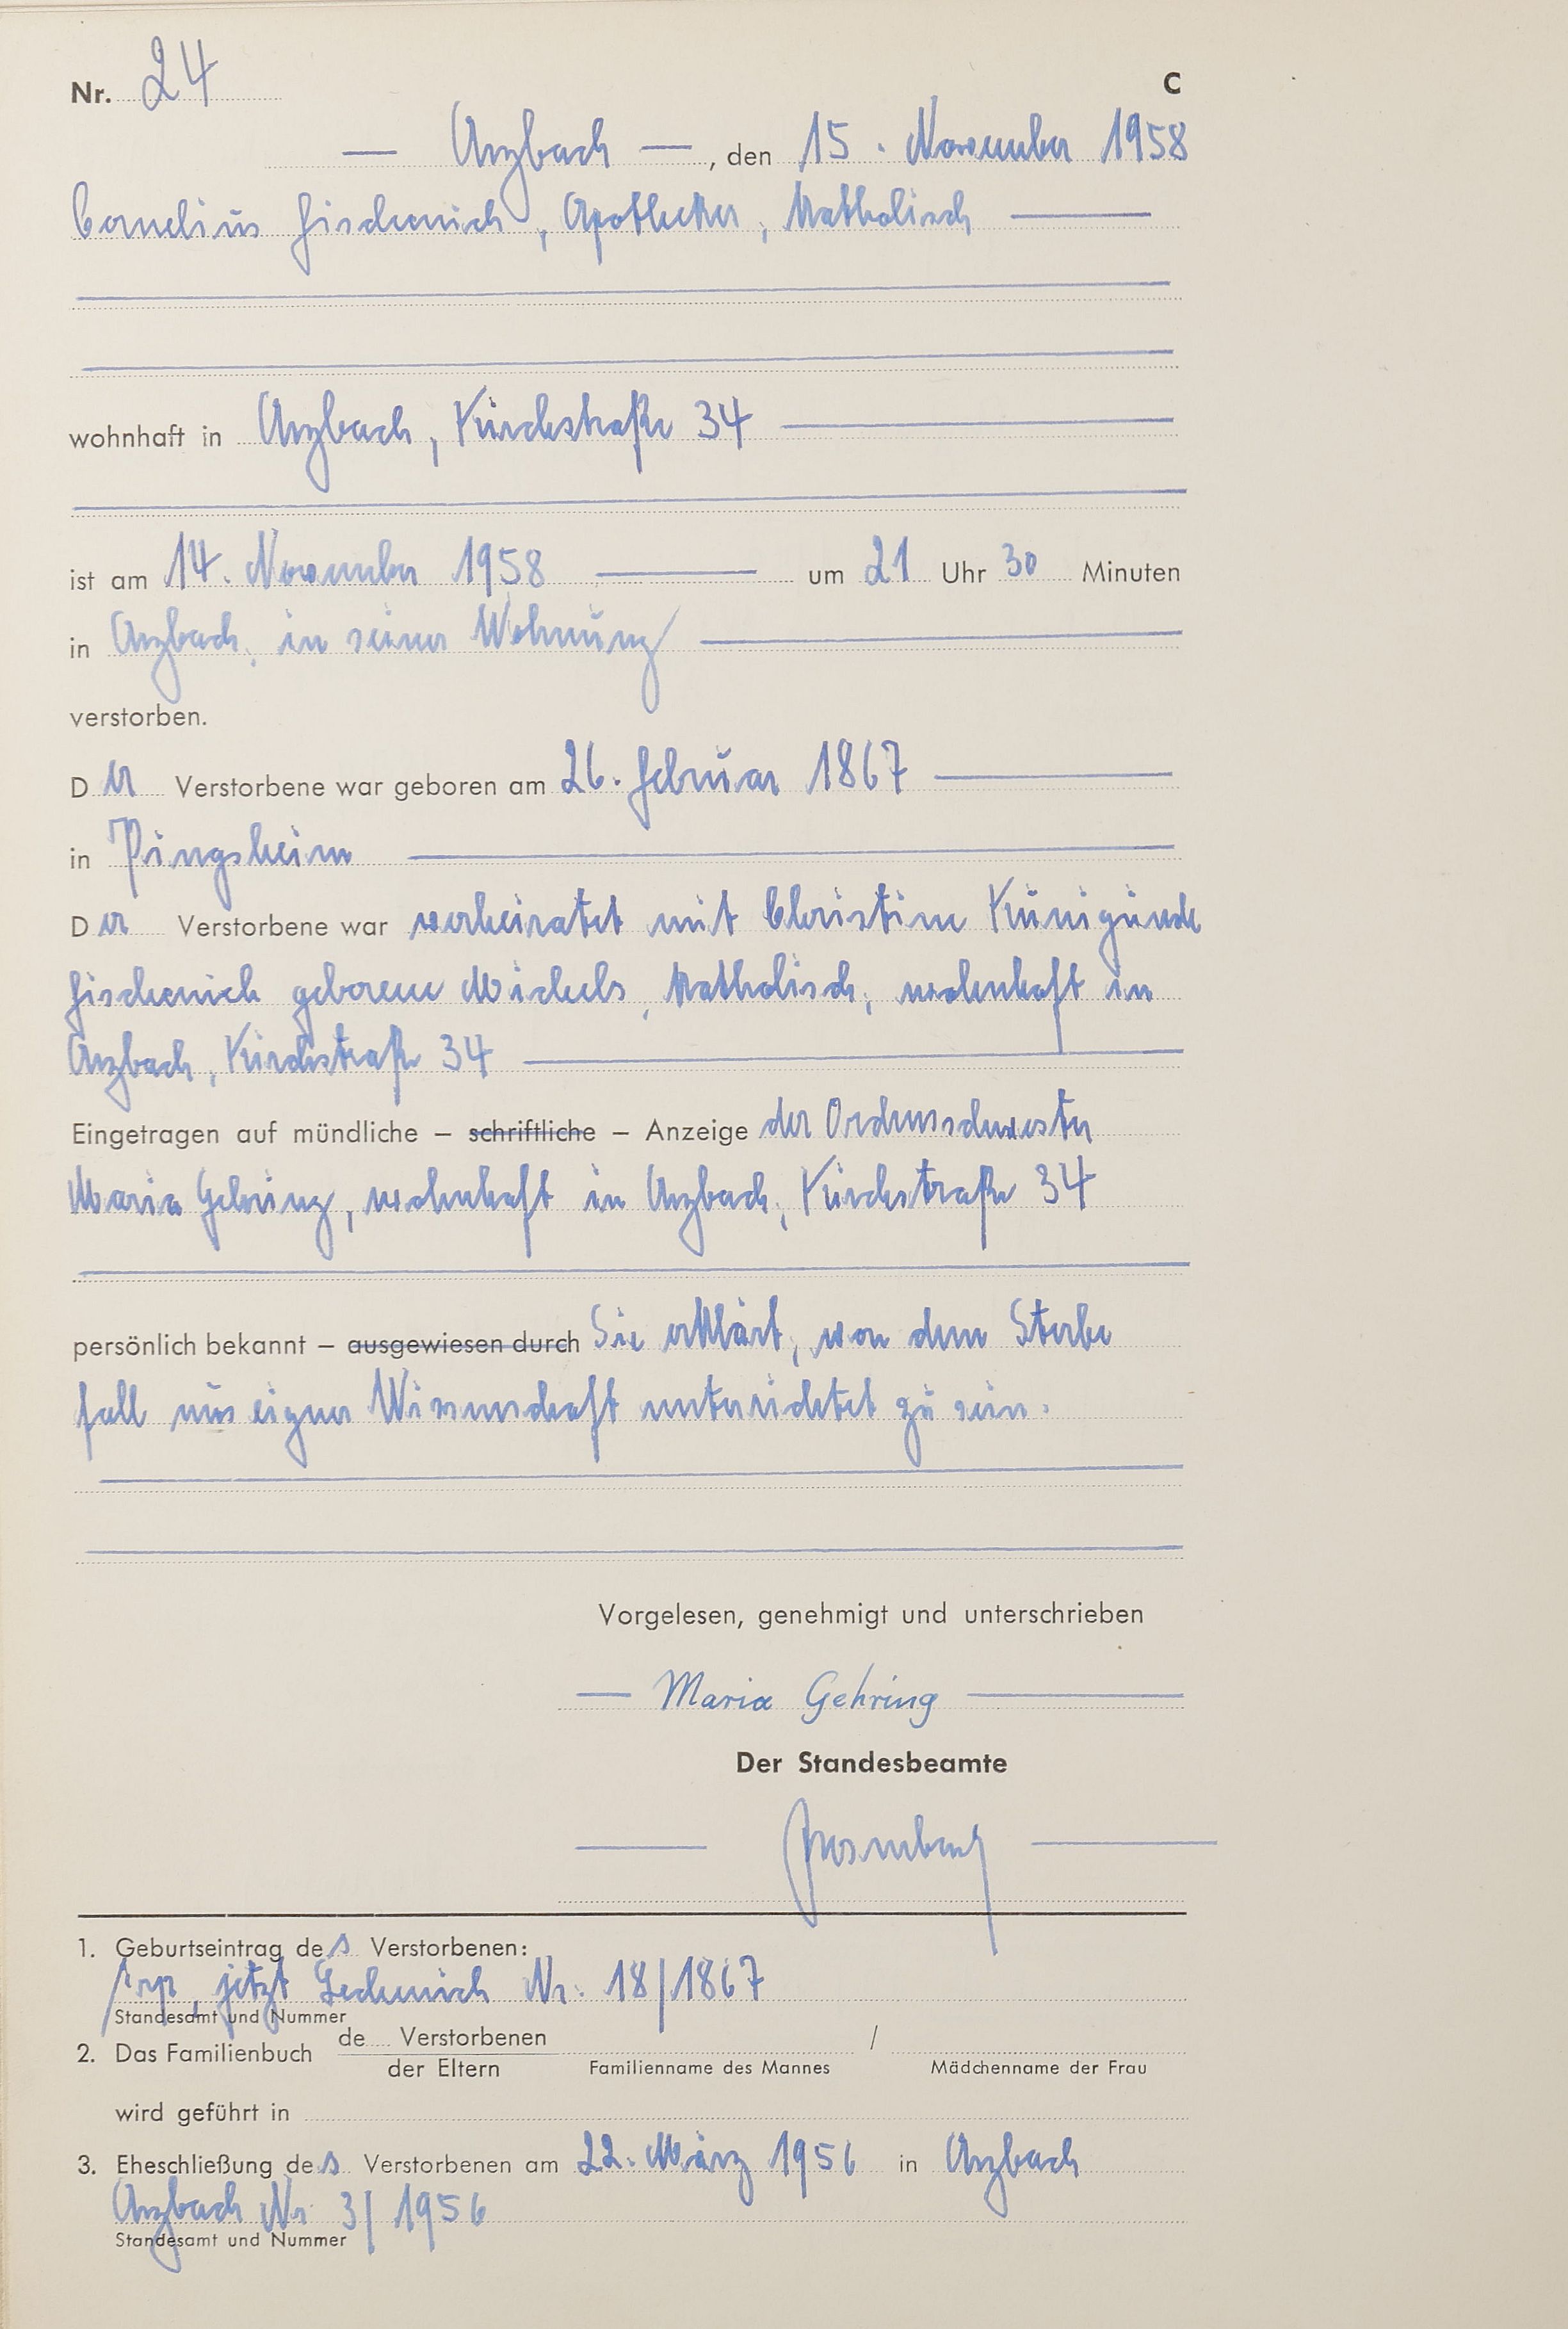 Nr. 24 C
— Arzbach —, den 15. November 1958
Cornelius Fischenich, Apotheker, katholisch —
wohnhaft in Arzbach, Kirchstraße 34 —
ist am 14. November 1958 — um 21 Uhr 30 Minuten
in Arzbach, in seiner Wohnung —
verstorben.
Der Verstorbene war geboren am 26. Februar 1867 —
in Pingsheim —
Der Verstorbene war verheiratet mit Christine Kunigunde
Fischenich geborene Michels, katholisch, wohnhaft in
Arzbach, Kirchstraße 34 —
Eingetragen auf mündliche – schriftliche – Anzeige der Ordensschwester
Maria Gehring, wohnhaft in Arzbach, Kirchstraße 34
persönlich bekannt – ausgewiesen durch Sie erklärt, von dem Sterbe
fall aus eigner Wissenschaft unterrichtet zu sein.
Vorgelesen, genehmigt und unterschrieben
— Maria Gehring —
Der Standesbeamte
1. Geburtseintrag des Verstorbenen:
jetzt Gechenich Nr. 18/1867
Standesamt und Nummer
2. Das Familienbuch de Verstorbenen /
der Eltern Familienname des Mannes Mädchenname der Frau
wird geführt in
3. Eheschließung des Verstorbenen am 22. März 1956 in Arzbach
Arzbach Nr. 3/1956
Standesamt und Nummer